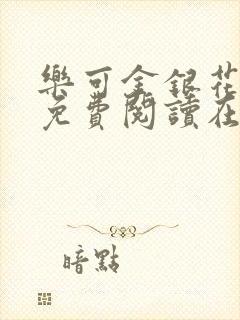 樂可金銀花
免費閱讀在
暗點